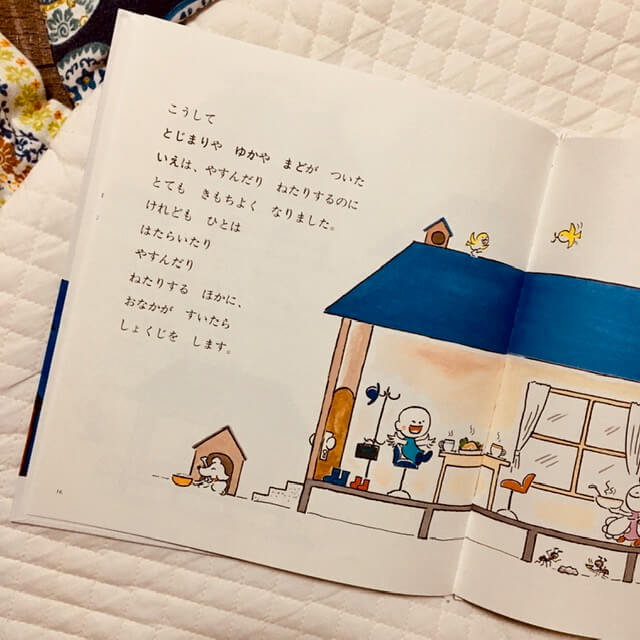 こうして
とじまりや　ゆかや　まどが　ついた
いえは、やすんだり　ねたりするのに
とても　きもちよく　なりました。
けれども　ひとは
はたらいたり
やすんだり
ねたりする　ほかに、
おなかが　すいたら
しょくじを　します。
16.